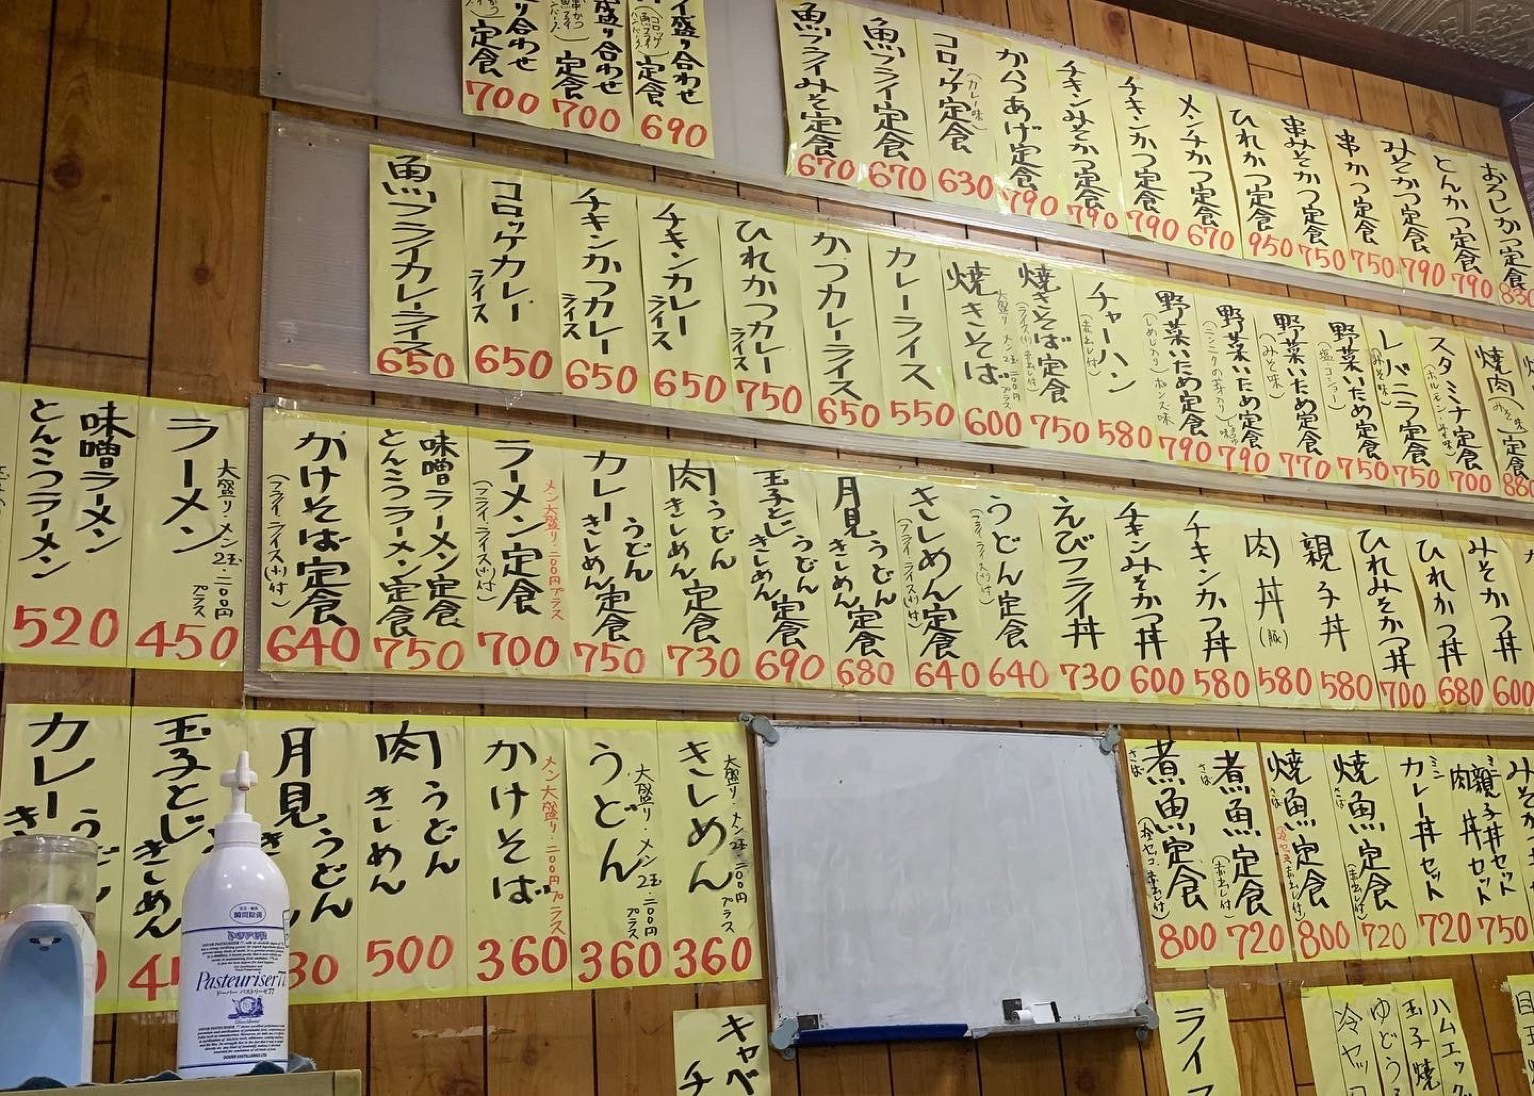 定食
700
定食
700
盛り合わせ
定食
690
魚フライみそ定食
670
魚フライ定食
670
コロッケ定食
(カレー味)
630
からあげ定食
790
チキンみそかつ定食
790
チキンかつ定食
790
メンチかつ定食
670
ひれかつ定食
950
串みそかつ定食
750
串かつ定食
750
みそかつ定食
790
とんかつ定食
790
おろしかつ定食
830
魚フライカレーライス
650
コロッケカレー
ライス
650
チキンかつカレー
ライス
650
チキンカレー
ライス
650
ひれかつカレー
ライス
750
かつカレーライス
650
カレーライス
550
焼きそば
大盛り・メン2玉・二〇〇円プラス
600
焼きそば定食
750
チャーハン
(赤出し付)
580
野菜いため定食
(しめじ入り)ポンズ味
790
野菜いため定食
790
野菜いため定食
(みそ味)
770
野菜いため定食
(塩・コショー)
750
レバニラ定食
(みそ味)
750
スタミナ定食
700
焼肉
(みそ味)
定食
880
味噌ラーメン
とんこつラーメン
520
ラーメン
大盛り・メン2玉・二〇〇円
プラス
450
かけそば定食
(フライ・ライス(小)付)
640
味噌ラーメン定食
とんこつラーメン定食
750
ラーメン定食
(フライ・ライス(小)付)
メン大盛り・二〇〇円プラス
700
カレーうどん
きしめん
定食
750
肉うどん
きしめん
定食
730
玉子とじうどん
きしめん
定食
690
月見うどん
きしめん
定食
680
きしめん定食
(フライ・ライス(小)付)
640
うどん定食
(フライ・ライス(小)付)
640
えびフライ丼
730
チキンみそかつ丼
600
チキンかつ丼
580
肉丼
(豚)
580
親子丼
580
ひれみそかつ丼
700
ひれかつ丼
680
みそかつ丼
600
カレーうどん
玉子とじ
きしめん
月見うどん
30
肉うどん
きしめん
500
かけそば
メン大盛り・二〇〇円プラス
360
うどん
大盛り・メン2玉・二〇〇円
プラス
360
きしめん
大盛り・メン2玉・二〇〇円
プラス
360
さば
煮魚定食
800
さば
煮魚定食
(赤出し付)
720
焼魚定食
さば
800
焼魚定食
さば
(赤出し付)
720
ミニ
カレー丼セット
720
親子丼セット
肉丼セット
750
瞬間除菌
DOVER
Pasteuriser77
ドーバー パストリーゼ77
キャベ
ライ
冷ヤッコ
ゆどうふ
玉子焼
ハムエッグ